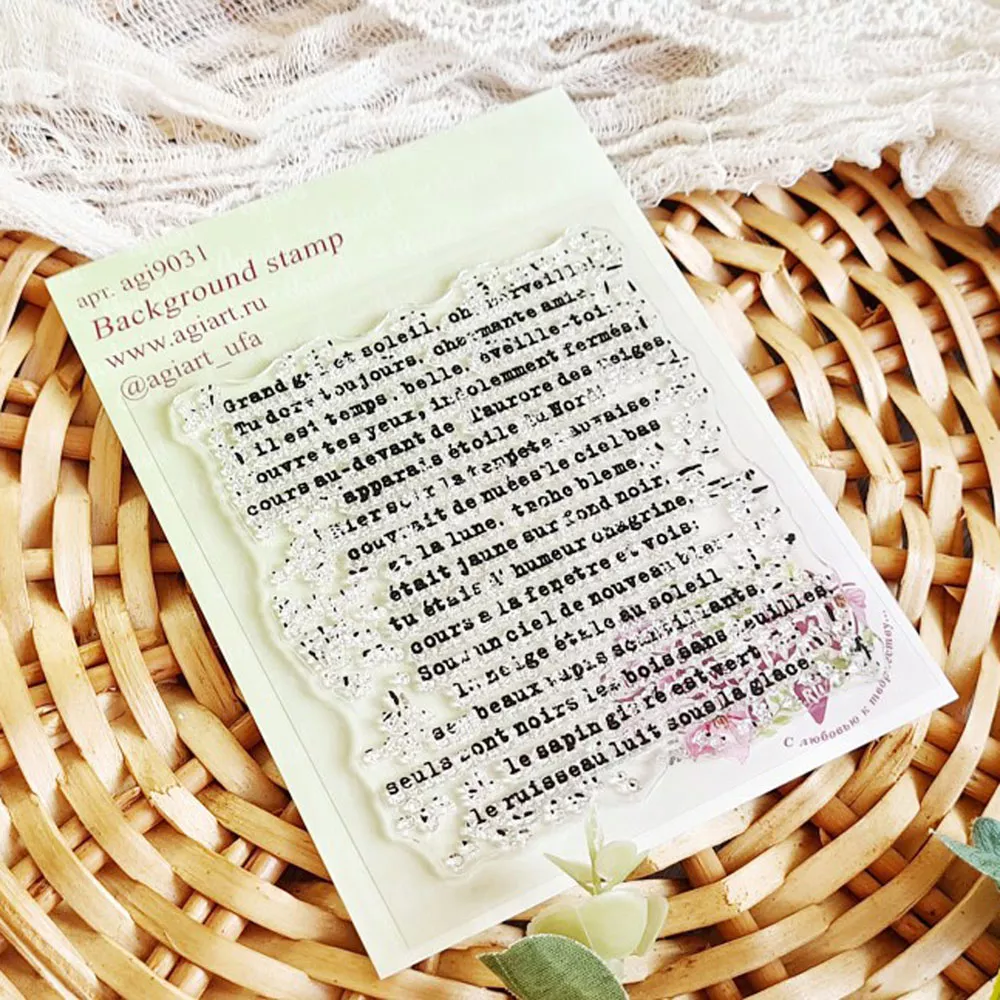 арт. agi9031
Background stamp
www.agiart.ru
@agiart_ufa
Grand gel et soleil, oh merveille!
Tu dors toujours, charmante amie,
il est temps, belle, éveille-toi:
ouvre tes yeux, indolemment fermés,
cours au-devant de l'aurore des neiges,
apparais étoile du Nord!
Hier soir la tempête mauvaise
couvrait de nuées le ciel bas
et la lune, tache bleme,
était jaune sur fond noir,
tu étais d'humeur chagrine,
cours a la fenetre et vois:
Sous un ciel de nouveau bleu
la neige étale au soleil
se beaux tapis scintillants,
seuls sont noirs les bois sans feuilles,
le sapin givré est vert
le ruisseau luit sous la glace.
С любовью к творчеству...